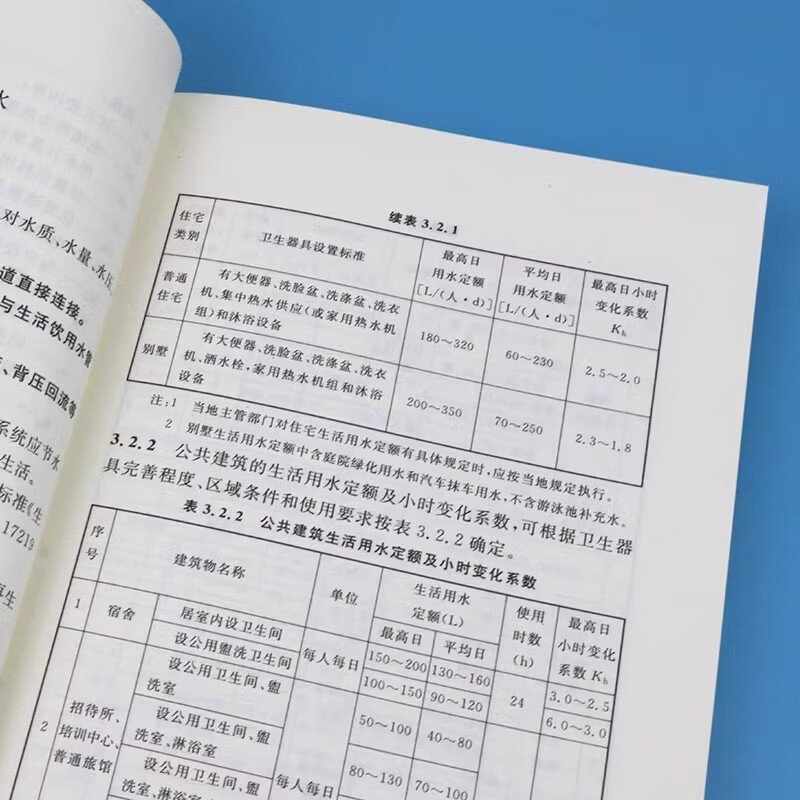 水
对水质、水量、水压
道直接连接。
与生活饮用水管
、背压回流等
系统应节水
生活。
标准《生
17219
续表3.2.1
住宅类别 卫生器具设置标准 最高日用水定额[L/(人·d)] 平均日用水定额[L/(人·d)] 最高日小时变化系数Kh
普通住宅 有大便器、洗脸盆、洗涤盆、洗衣机、集中热水供应(或家用热水机组)和沐浴设备 180～320 60～230 2.5～2.0
别墅 有大便器、洗脸盆、洗涤盆、洗衣机、洒水栓,家用热水机组和沐浴设备 200～350 70～250 2.3～1.8
注:1 当地主管部门对住宅生活用水定额有具体规定时,应按当地规定执行。
2 别墅生活用水定额中含庭院绿化用水和汽车抹车用水,不含游泳池补充水。
3.2.2 公共建筑的生活用水定额及小时变化系数,可根据卫生器
具完善程度、区域条件和使用要求按表3.2.2确定。
表3.2.2 公共建筑生活用水定额及小时变化系数
序号 建筑物名称 单位 生活用水定额(L) 最高日 平均日 使用时数(h) 最高日小时变化系数Kh
1 宿舍 居室内设卫生间 每人每日 150～200 130～160 24 3.0～2.5
设公用盥洗卫生间 100～150 90～120 6.0～3.0
2 招待所、培训中心、普通旅馆 设公用卫生间、盥洗室 每人每日 50～100 40～80
设公用卫生间、盥洗室、淋浴室 80～130 70～100
设公用卫生间、盥洗室、淋浴室